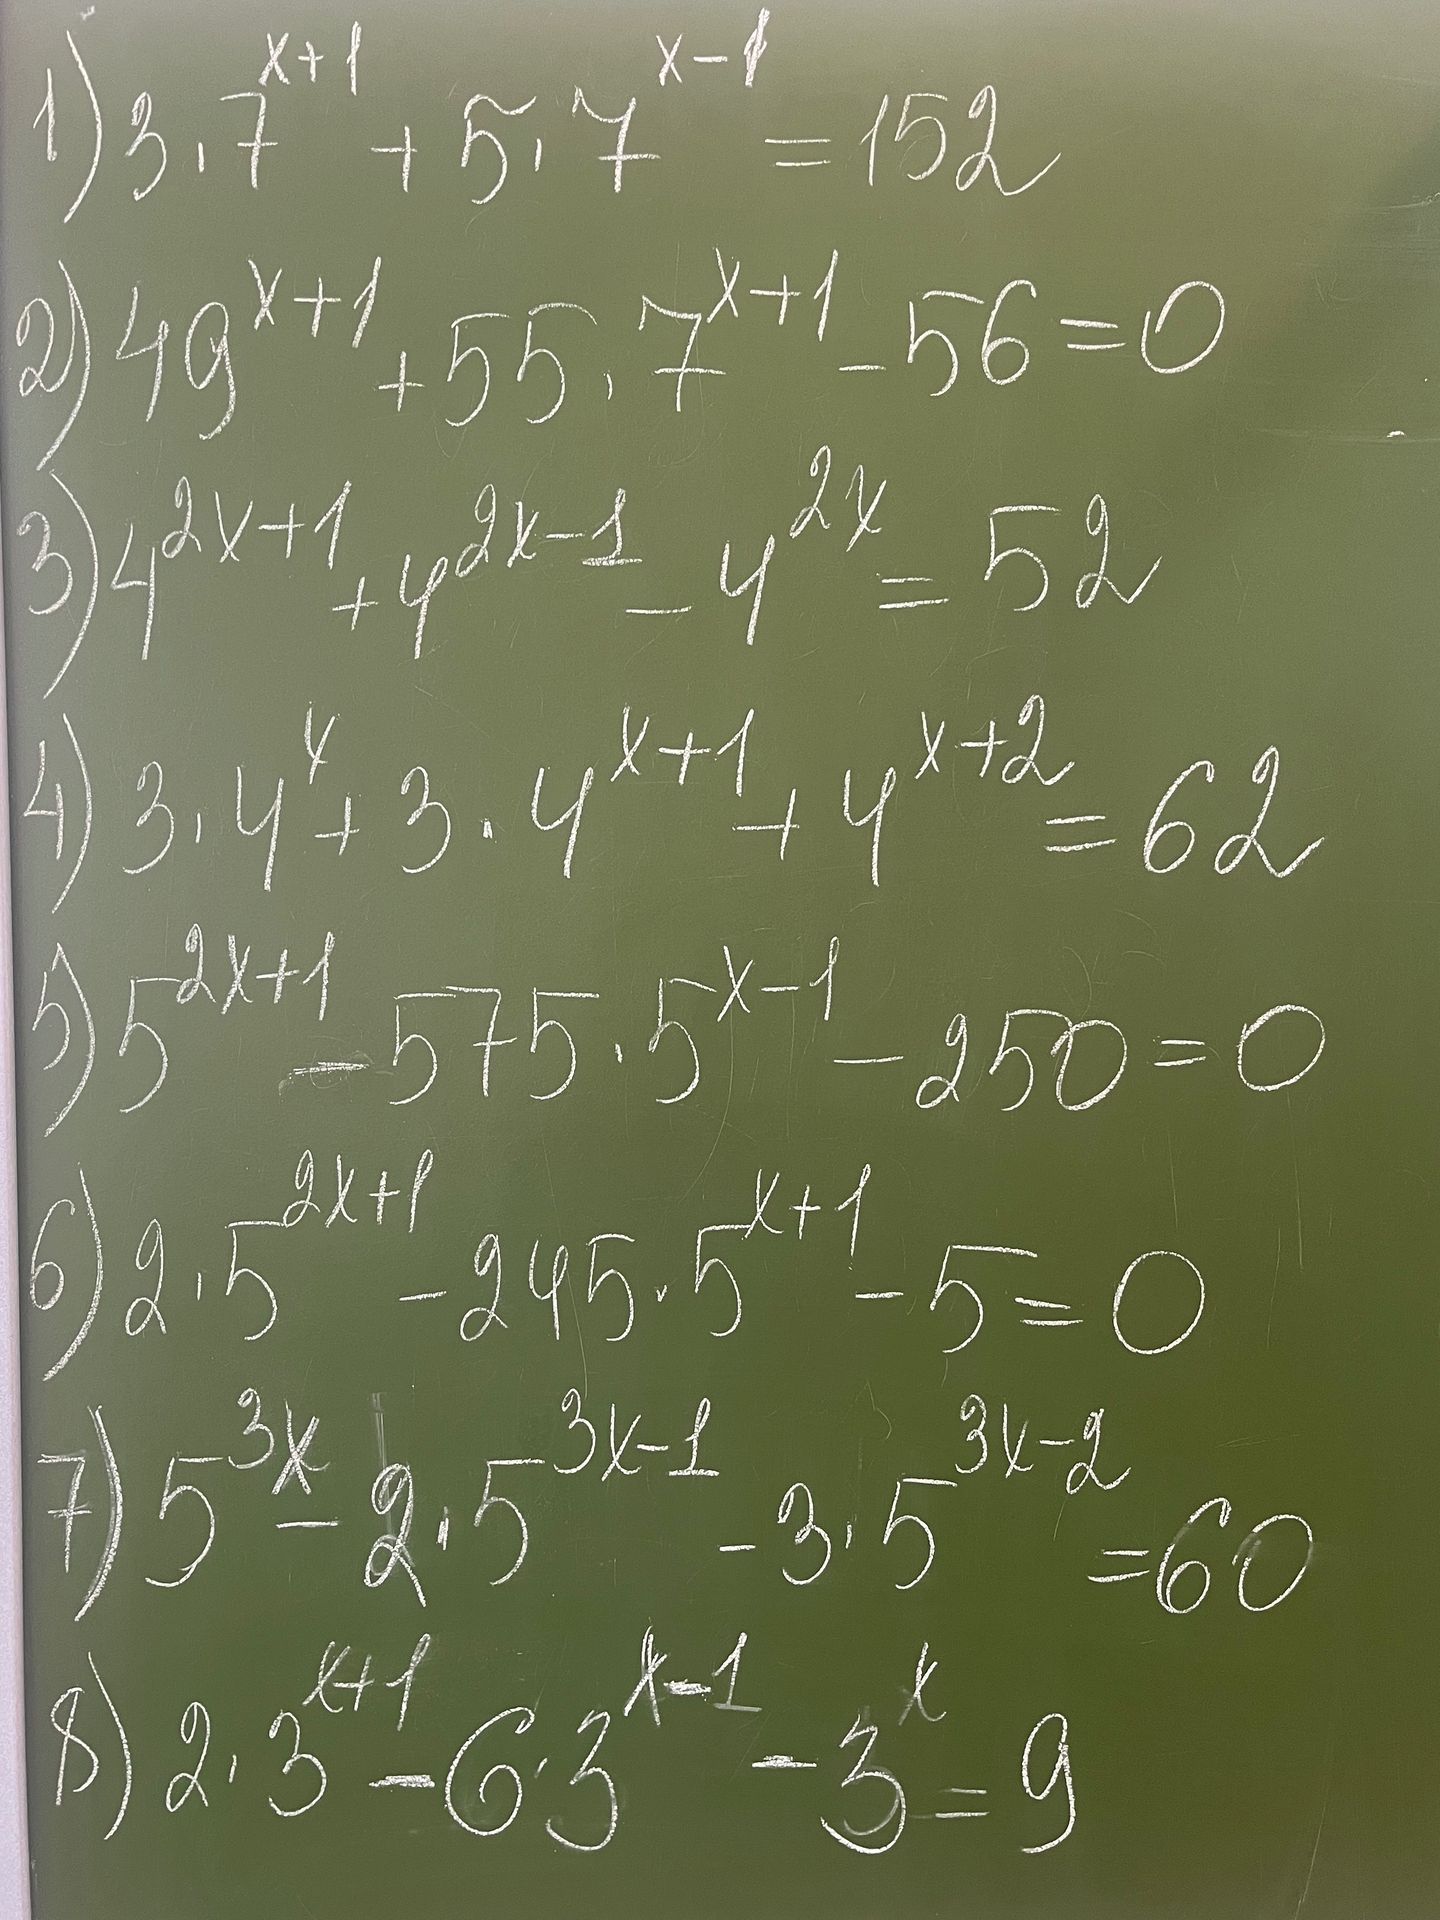 1) 3·7^{x+1} + 5·7^{x-1} = 152
2) 49^{x+1} + 55·7^{x+1} - 56 = 0
3) 4^{2x+1} + 4^{2x-1} - 4^{2x} = 52
4) 3·4^{x} + 3·4^{x+1} + 4^{x+2} = 62
5) 5^{2x+1} - 575·5^{x-1} - 250 = 0
6) 2·5^{2x+1} - 245·5^{x+1} - 5 = 0
7) 5^{3x} - 2·5^{3x-1} - 3·5^{3x-2} = 60
8) 2·3^{x+1} - 6·3^{x-1} - 3^{x} = 9